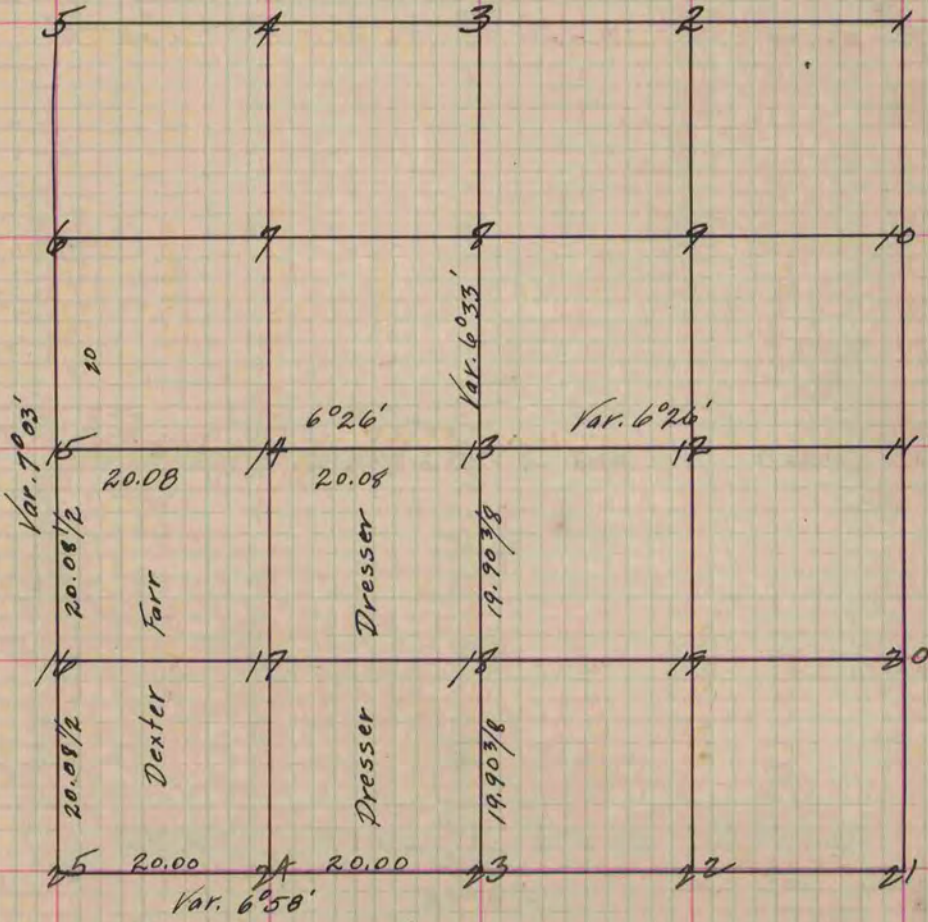 5 4 3 2 1
6 7 8 9 10
Var. 6°33'
20
6°26' Var. 6°26'
Var. 7°03'
15 14 13 12 11
20.08 20.08
20.08 1/2 Farr Dresser 19.90 3/8
16 17 18 19 20
20.08 1/2 Dexter Dresser 19.90 3/8
20.00 20.00
25 24 23 22 21
Var. 6°58'